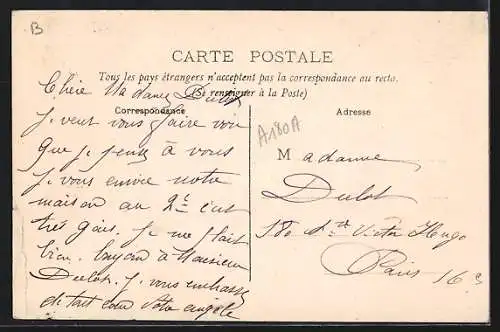 B
CARTE POSTALE
Tous les pays étrangers n'acceptent pas la correspondance au recto.
(Se renseigner à la Poste)
Correspondance
Chère Madame Dulot
je veut vous faire voir
que je pense à vous
je vous envoie notre
maison au 2e c'est
très gais. je me plait
bien. à Monsieur
Dulot. je vous embrasse
de tout cœur votre angèle
Adresse
A180A
Madame
Dulot
180 Victor Hugo
Paris 16e